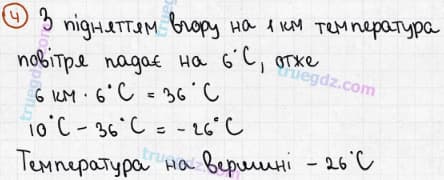 4 З підняттям вгору на 1 км температура
повітря падає на 6°C, отже
6 км · 6°C = 36°C
10°C - 36°C = - 26°C
Температура на вершині - 26°C
truegdz.com
truegdz.com
truegdz.com